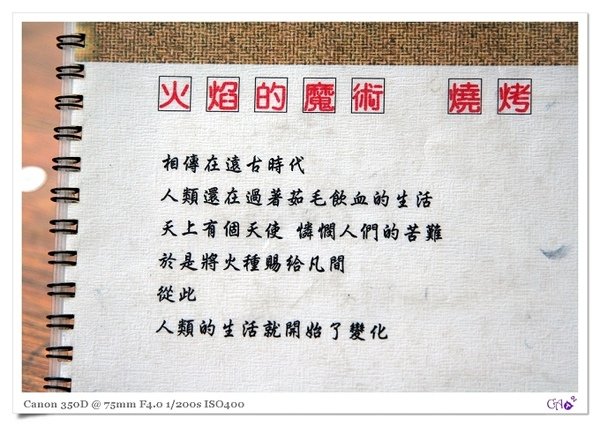 火焰的魔術 燒烤
相傳在遠古時代
人類還在過著茹毛飲血的生活
天上有個天使 憐憫人們的苦難
於是將火種賜給凡間
從此
人類的生活就開始了變化
Canon 350D @ 75mm F4.0 1/200s ISO400